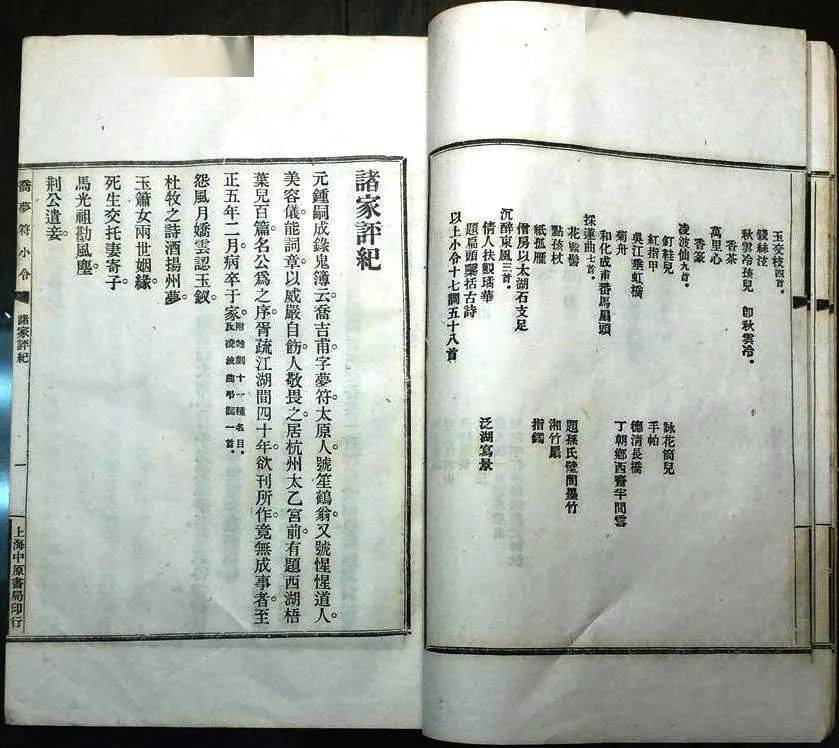 玉交枝四首。
錢絲泫
秋雲冷孩兒 即秋雲冷。
香茶
萬里心
香篆
凌波仙九首。
釘鞋兒 詠花筒兒
紅指甲 手帕
吳江垂虹橋 德清長橋
菊舟 丁朝鄉西齋半間雲
和化成甫番馬扇頭
採蓮曲七首。
花髻 題孫氏壁間墨竹
點孩杖 湘竹扇
紙孤雁 指鐲
僧房以太湖石支足
沉醉東風三首。
情人扶觀璚華 泛湖寫景
題扁頭櫽括古詩
以上小令十七調五十八首
諸家評紀
元鍾嗣成錄鬼簿云喬吉甫字夢符太原人。號笙鶴翁。又號惺惺道人。
美容儀。能詞章。以威嚴自飭。人敬畏之。居杭州太乙宮前。有題西湖梧
葉兒百篇。名公爲之序。胥疏江湖間四十年。欲刊所作。竟無成事者。至
正五年二月病卒于家。附雜劇十一種名目。及凌波曲弔詞一首。
怨風月嬌雲認玉釵。
杜牧之詩酒揚州夢。
玉簫女兩世姻緣。
死生交托妻寄子。
馬光祖勘風塵。
荆公遣妾。
喬夢符小令
諸家評紀
一
上海中原書局印行